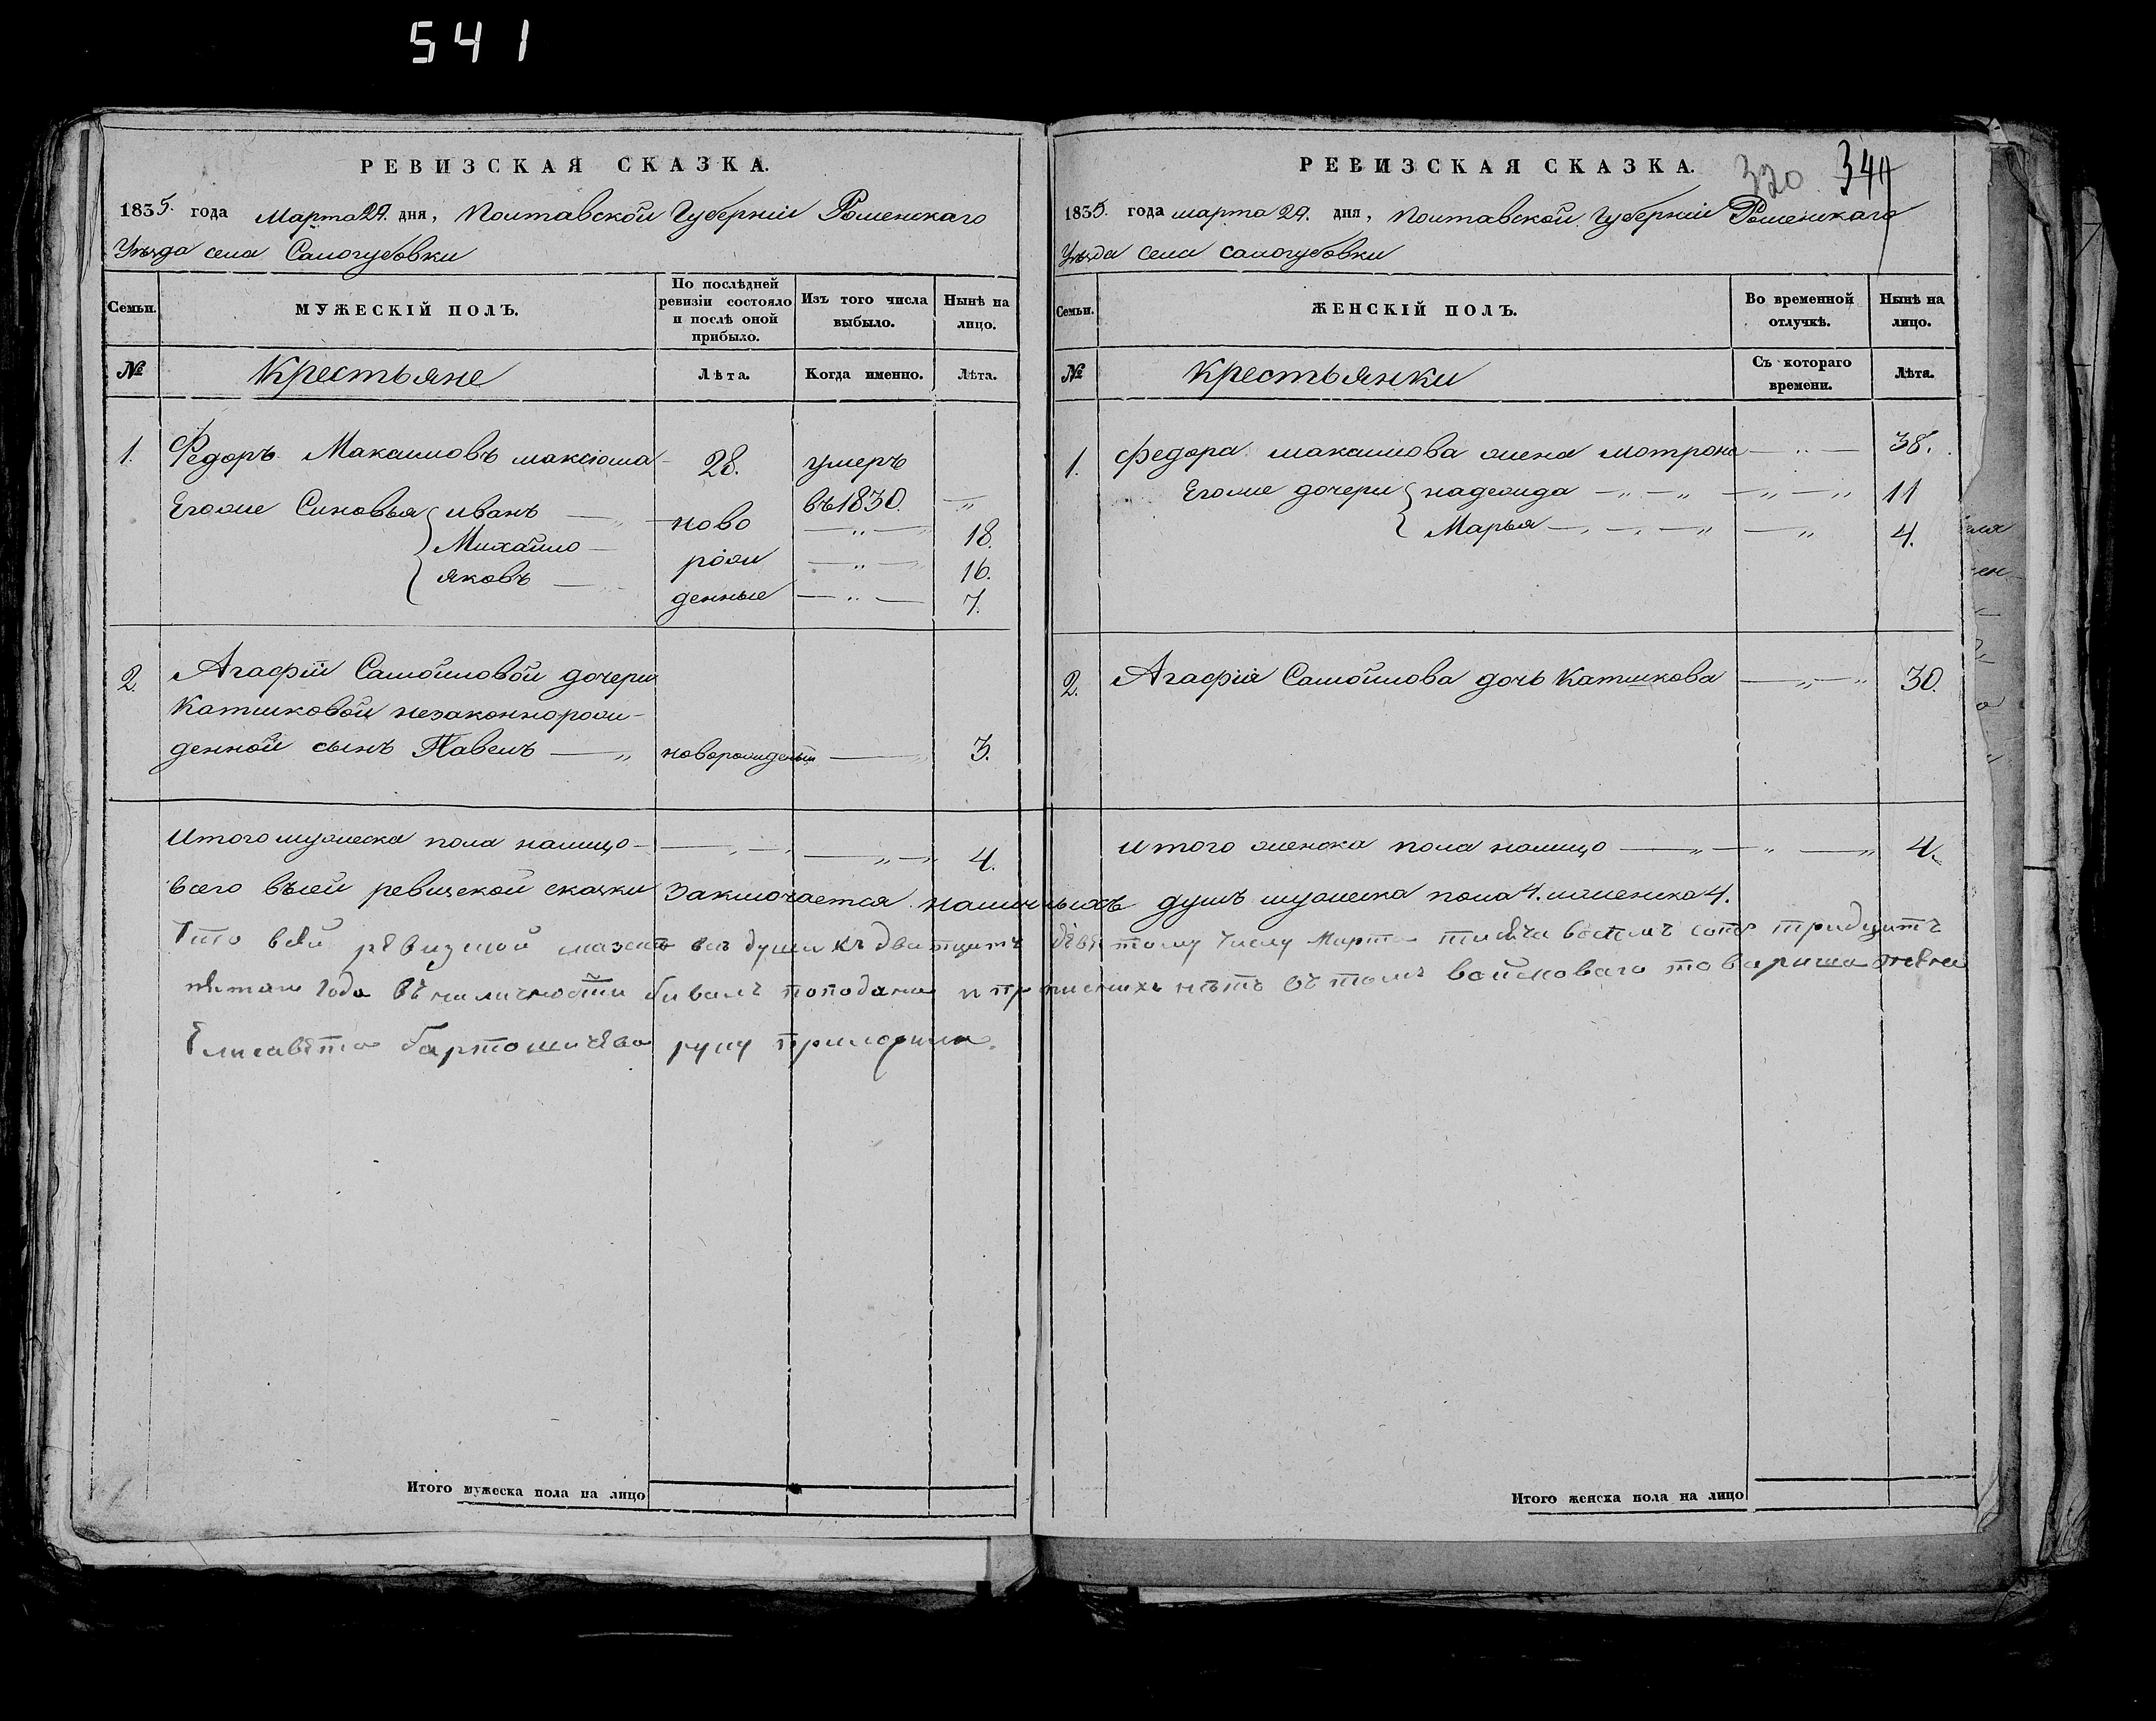 541
РЕВИЗСКАЯ СКАЗКА.
1835. года Марта 29. дня, Полтавской Губерніи Роменскаго
Уѣзда села Самогубовки
Семьи.
МУЖЕСКІЙ ПОЛЪ.
По послѣдней ревизіи состояло и послѣ оной прибыло.
Изъ того числа выбыло.
Нынѣ на лицо.
№
Крестьяне
Лѣта.
Когда именно.
Лѣта.
1. Федоръ Максимовъ 28. умеръ
въ 1830. — „
Егоже Синовья иванъ — „ — ново — „ — 18.
Михайло — рож — „ — 16.
яковъ — денные — „ — 7.
2. Агафіи Самойловой дочери
Катиковой незаконнорож-
денной сынъ Павелъ — „ новорожденый — „ 3.
Итого мужеска пола налицо — „ — „ — 4.
РЕВИЗСКАЯ СКАЗКА. 320 344
1835. года марта 29. дня, Полтавской Губерніи Роменскаго
Уѣзда села самогубовки
Семьи.
ЖЕНСКІЙ ПОЛЪ.
Во временной отлучкѣ.
Нынѣ на лицо.
№
Крестьянки
Съ котораго времени.
Лѣта.
1. Федора максимова жена мотрона — „ — 38.
Егоже дочери надежда — „ — „ — „ — „ 11
Марья — „ — „ — „ — „ 4.
2. Агафія Самойлова дочь Катикова — „ — „ 30.
Итого женска пола налицо — „ — „ — „ 4.
Всего въсей ревизской сказки заключается наличныхъ душъ мужеска пола 4. иженска 4.
Что всей ревизкой сказкѣ всѣ души къ двадцать девятому числу Марта тисяча восемъ сотъ тридцять
пятаго года въ наличности и прописнихъ нѣтъ въ томъ войсковаго товариша жена
Елисавета бартошичева руку приложила.
Итого мужеска пола на лицо
Итого женска пола на лицо